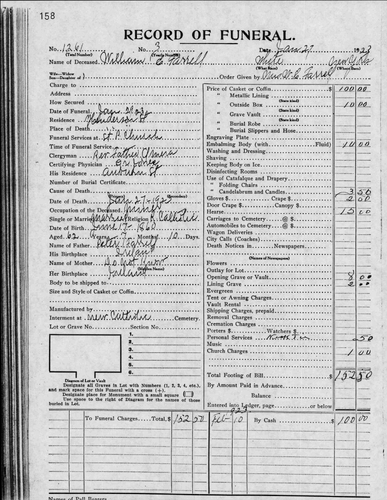 158
RECORD OF FUNERAL.
No. 1261 No. 3 Date Jan. 27 1923
(Total Number) (Yearly Number)
Name of Deceased William E. Farrell White
Order Given by Wm. E. Farrell
Charge to
Address
How Secured
Date of Funeral Jan 29 23
Residence Henderson St
Place of Death
Funeral Services at St. P. Church
Time of Funeral Service
Clergyman Rev. Father
Certifying Physician Jones
His Residence Auburn St
Number of Burial Certificate
Cause of Death
Date of Death Jan 27 - 1923
Occupation of the Deceased
Single or Married Married Religion Catholic
Date of Birth June 17 - 1860
Aged 62 Years 7 Months 10 Days
Name of Father Peter Farrell
His Birthplace Ireland
Name of Mother Do not know
Her Birthplace Ireland
Body to be shipped to
Size and Style of Casket or Coffin
Manufactured by
Interment at New Catholic Cemetery.
Lot or Grave No. Section No.
1
2
3
4
5
6
Diagram of Lot or Vault
Designate all Graves in Lot with Numbers (1, 2, 3, 4, etc.), and mark space for this Funeral with a cross (+).
Designate place for Monument with a small square
Use space to the right of Diagram for the names of those buried in Lot.
Price of Casket or Coffin $ 100 00
" Metallic Lining
" Outside Box 10 00
" Grave Vault
" Burial Robe
" Burial Slippers and Hose
Engraving Plate
Embalming Body (with Fluid) 10 00
Washing and Dressing
Shaving
Keeping Body on Ice
Disinfecting Rooms
Use of Catafalque and Drapery
" Folding Chairs
" Candelabrum and Candles 3 50
Gloves $ Crape $ 2 00
Door Crape Canopy $
Hearse 15 00
Carriages to Cemetery @ $
Automobiles to Cemetery @ $
Wagon Deliveries
City Calls (Coaches)
Death Notices in Newspapers
Flowers
Outlay for Lot
Opening Grave or Vault 8 00
Lining Grave 2 00
Evergreen
Tent or Awning Charges
Vault Rental
Shipping Charges, prepaid
Removal Charges
Cremation Charges
Porters $ Watchers $
Personal Services 50
Music
Church Charges 1 00
Total Footing of Bill $ 152 50
By Amount Paid in Advance
Balance
Entered into Ledger, page or below
To Funeral Charges $ 152 50 Feb. 10 By Cash $ 100 00
Names of Pall Bearers